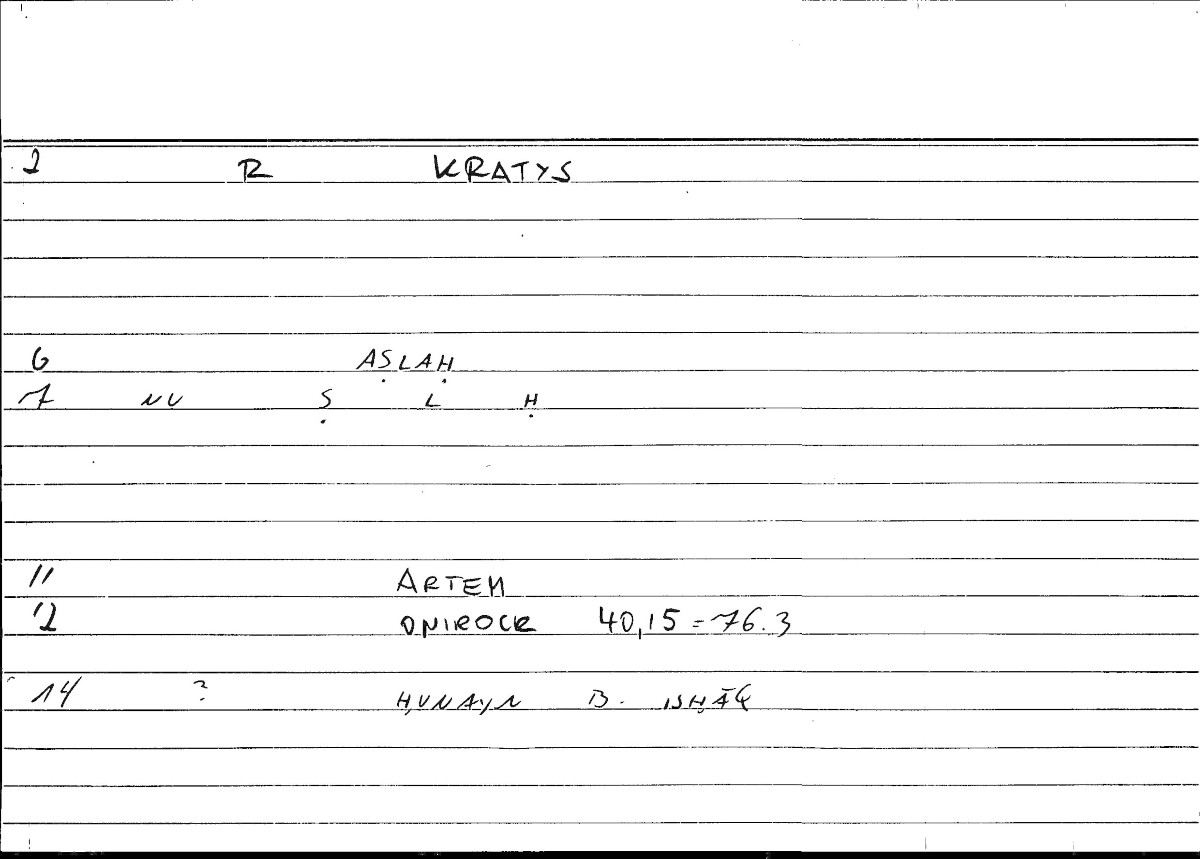 2 R KRATYS
6 AṢLAḤ
7 NU Ṣ L Ḥ
11 ARTEM
12 ONIROCR 40,15 = 76.3
14 ? ḤUNAYN B. ISḤĀQ